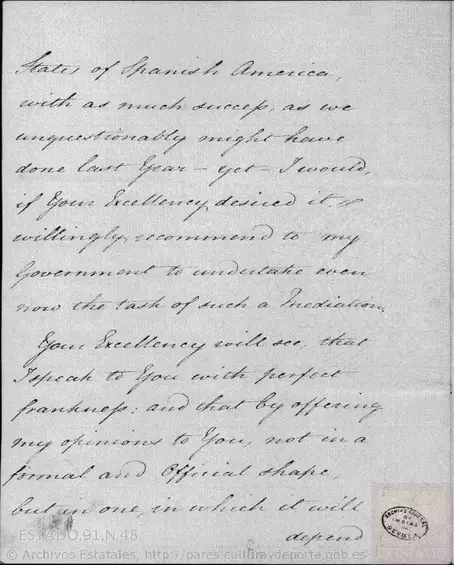 States of Spanish America,
with as much success, as we
unquestionably might have
done last Year – yet – I would,
if Your Excellency desired it,
willingly recommend to my
Government to undertake even
now the task of such a Mediation.
Your Excellency will see, that
I speak to You with perfect
frankness; and that by offering
my opinions to You, not in a
formal and Official shape,
but in one, in which it will
depend
ARCHIVO GENERAL
DE
INDIAS
SEVILLA
ESTADO,91,N.48
© Archivos Estatales, http://pares.culturaydeporte.gob.es